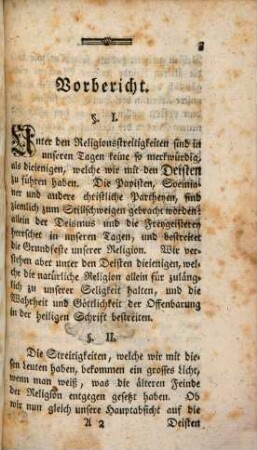 3
Vorbericht.
§. I.
Unter den Religionsstreitigkeiten sind in
unseren Tagen keine so merkwürdig,
als diejenigen, welche wir mit den Deisten
zu führen haben. Die Papisten, Socinia-
ner und andere christliche Partheyen, sind
ziemlich zum Stillschweigen gebracht worden:
allein der Deismus und die Freygeisterey
herrschet in unseren Tagen, und bestreitet
die Grundfeste unserer Religion. Wir ver-
stehen aber unter den Deisten diejenigen, wel-
che die natürliche Religion allein für zuläng-
lich zu unserer Seligkeit halten, und die
Wahrheit und Göttlichkeit der Offenbarung
in der heiligen Schrift bestreiten.
§. II.
Die Streitigkeiten, welche wir mit die-
sen Leuten haben, bekommen ein grosses Licht,
wenn man weiß, was die älteren Feinde
der Religion entgegen gesetzt haben. Ob
wir nun gleich unsere Hauptabsicht auf die
A 2 Deisten